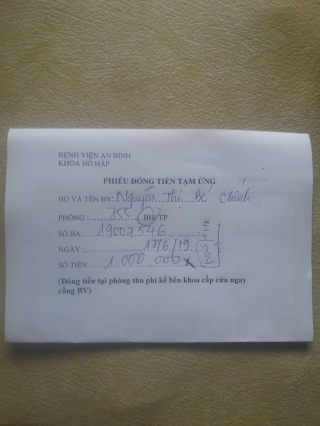 BỆNH VIỆN AN BÌNH
KHOA HÔ HẤP
PHIẾU ĐÓNG TIỀN TẠM ỨNG
HỌ VÀ TÊN BN: Nguyễn Thị Bé Chính
PHÒNG : 755 BH/TP
SỐ BA: 19007546
NGÀY : 17/6/19
SỐ TIỀN : 1.000 000 x 2
(Đóng tiền tại phòng thu phí kế bên khoa cấp cứu ngay
cổng BV)